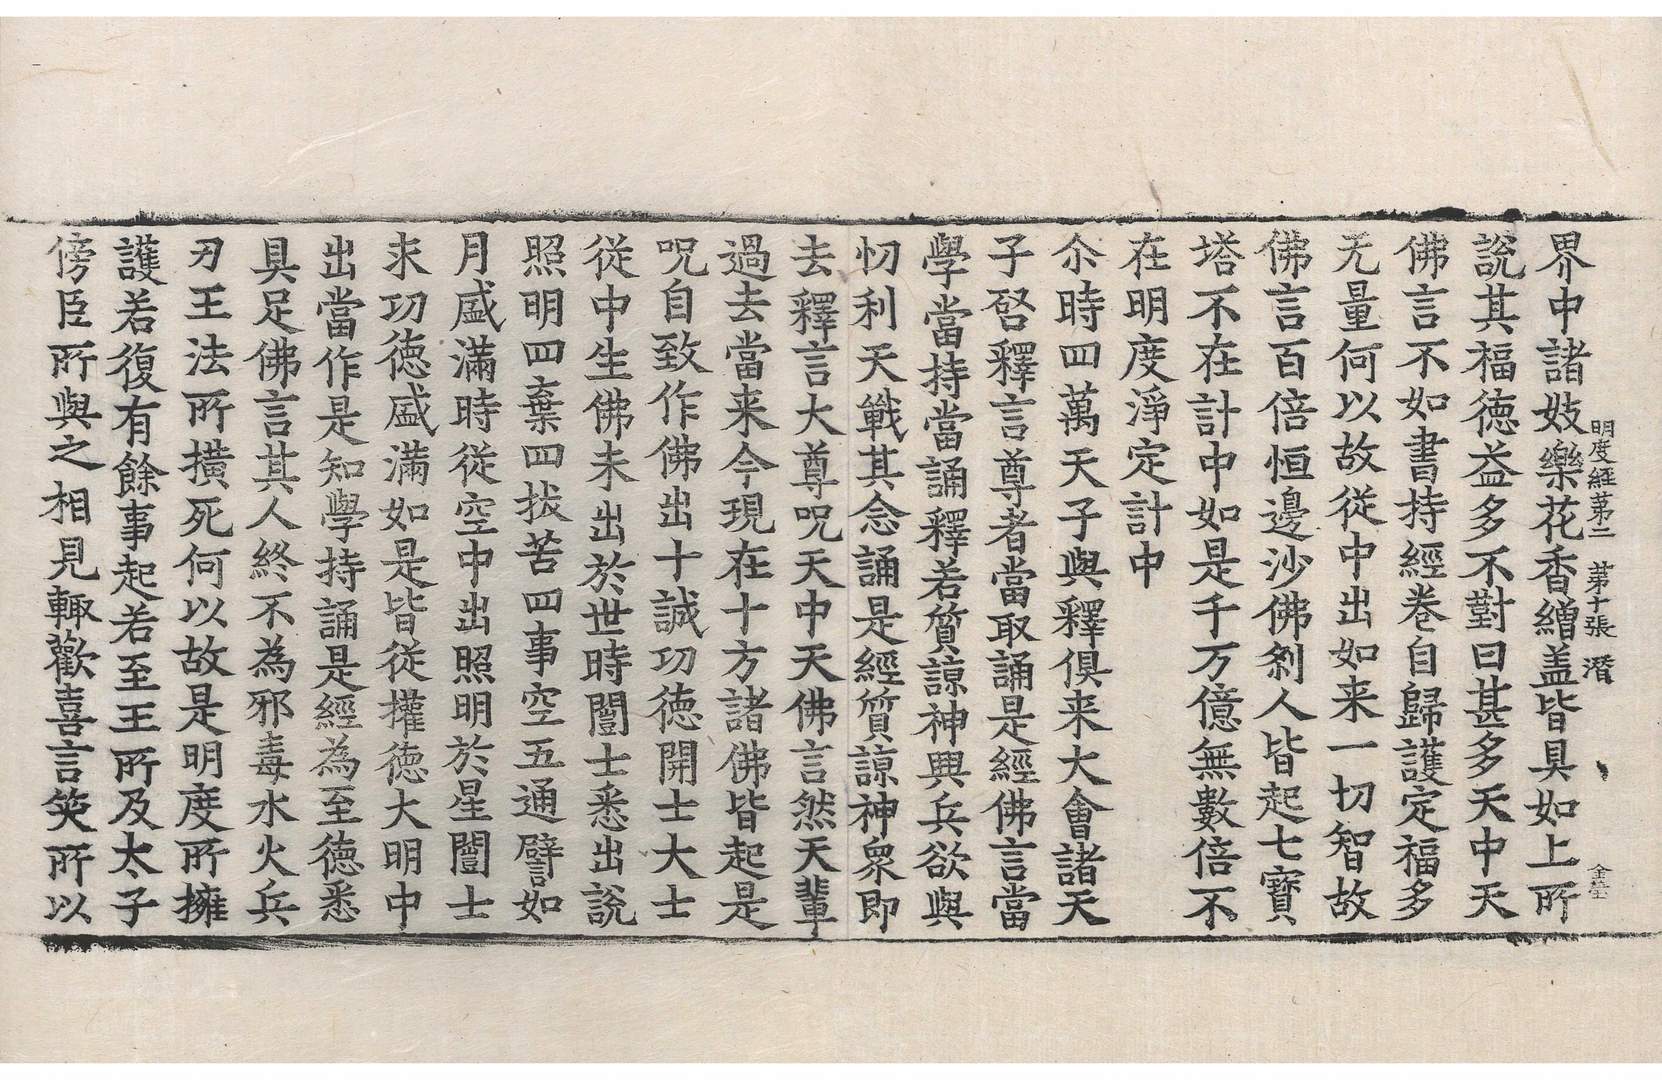 明度經第二 第十張 潛
界中諸妓樂花香繒盖皆具如上所
說其福德益多不對曰甚多天中天
佛言不如書持經卷自歸護定福多
无量何以故從中出如来一切智故
佛言百倍恒邊沙佛刹人皆起七寶
塔不在計中如是千万億無數倍不
在明度淨定計中
尒時四萬天子與釋俱来大會諸天
子啓釋言尊者當取誦是經佛言當
學當持當誦釋若質諒神興兵欲與
忉利天戰其念誦是經質諒神衆即
去釋言大尊呪天中天佛言然天輩
過去當来今現在十方諸佛皆起是
呪自致作佛出十誡功德開士大士
從中生佛未出於世時闓士悉出說
照明四棄四拔苦四事空五通譬如
月盛滿時從空中出照明於星闓士
求功德盛滿如是皆從攉德大明中
出當作是知學持誦是經為至德悉
具足佛言其人終不為邪毒水火兵
刃王法所横死何以故是明度所擁
護若復有餘事起若至王所及太子
傍臣所與之相見輒歡喜言笑所以